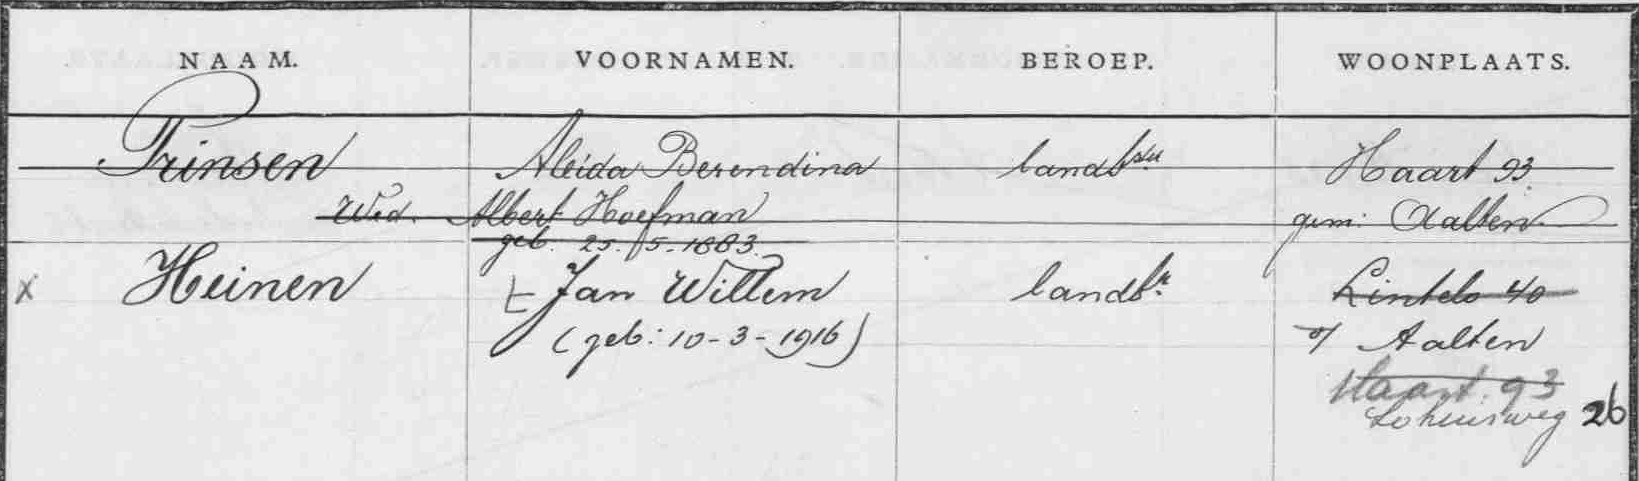 NAAM. VOORNAMEN. BEROEP. WOONPLAATS.
Prinsen Aleida Berendina landbster Haart 93
Wed. Albert Hoefman gem: Aalten
geb. 25-5-1883.
x Heinen Jan Willem landbr. Lintelo 40
(geb: 10-3-1916) Aalten
Haart. 93
Lohuisweg 26